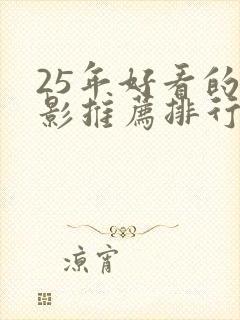 25年好看的
影推薦排行
凉宵